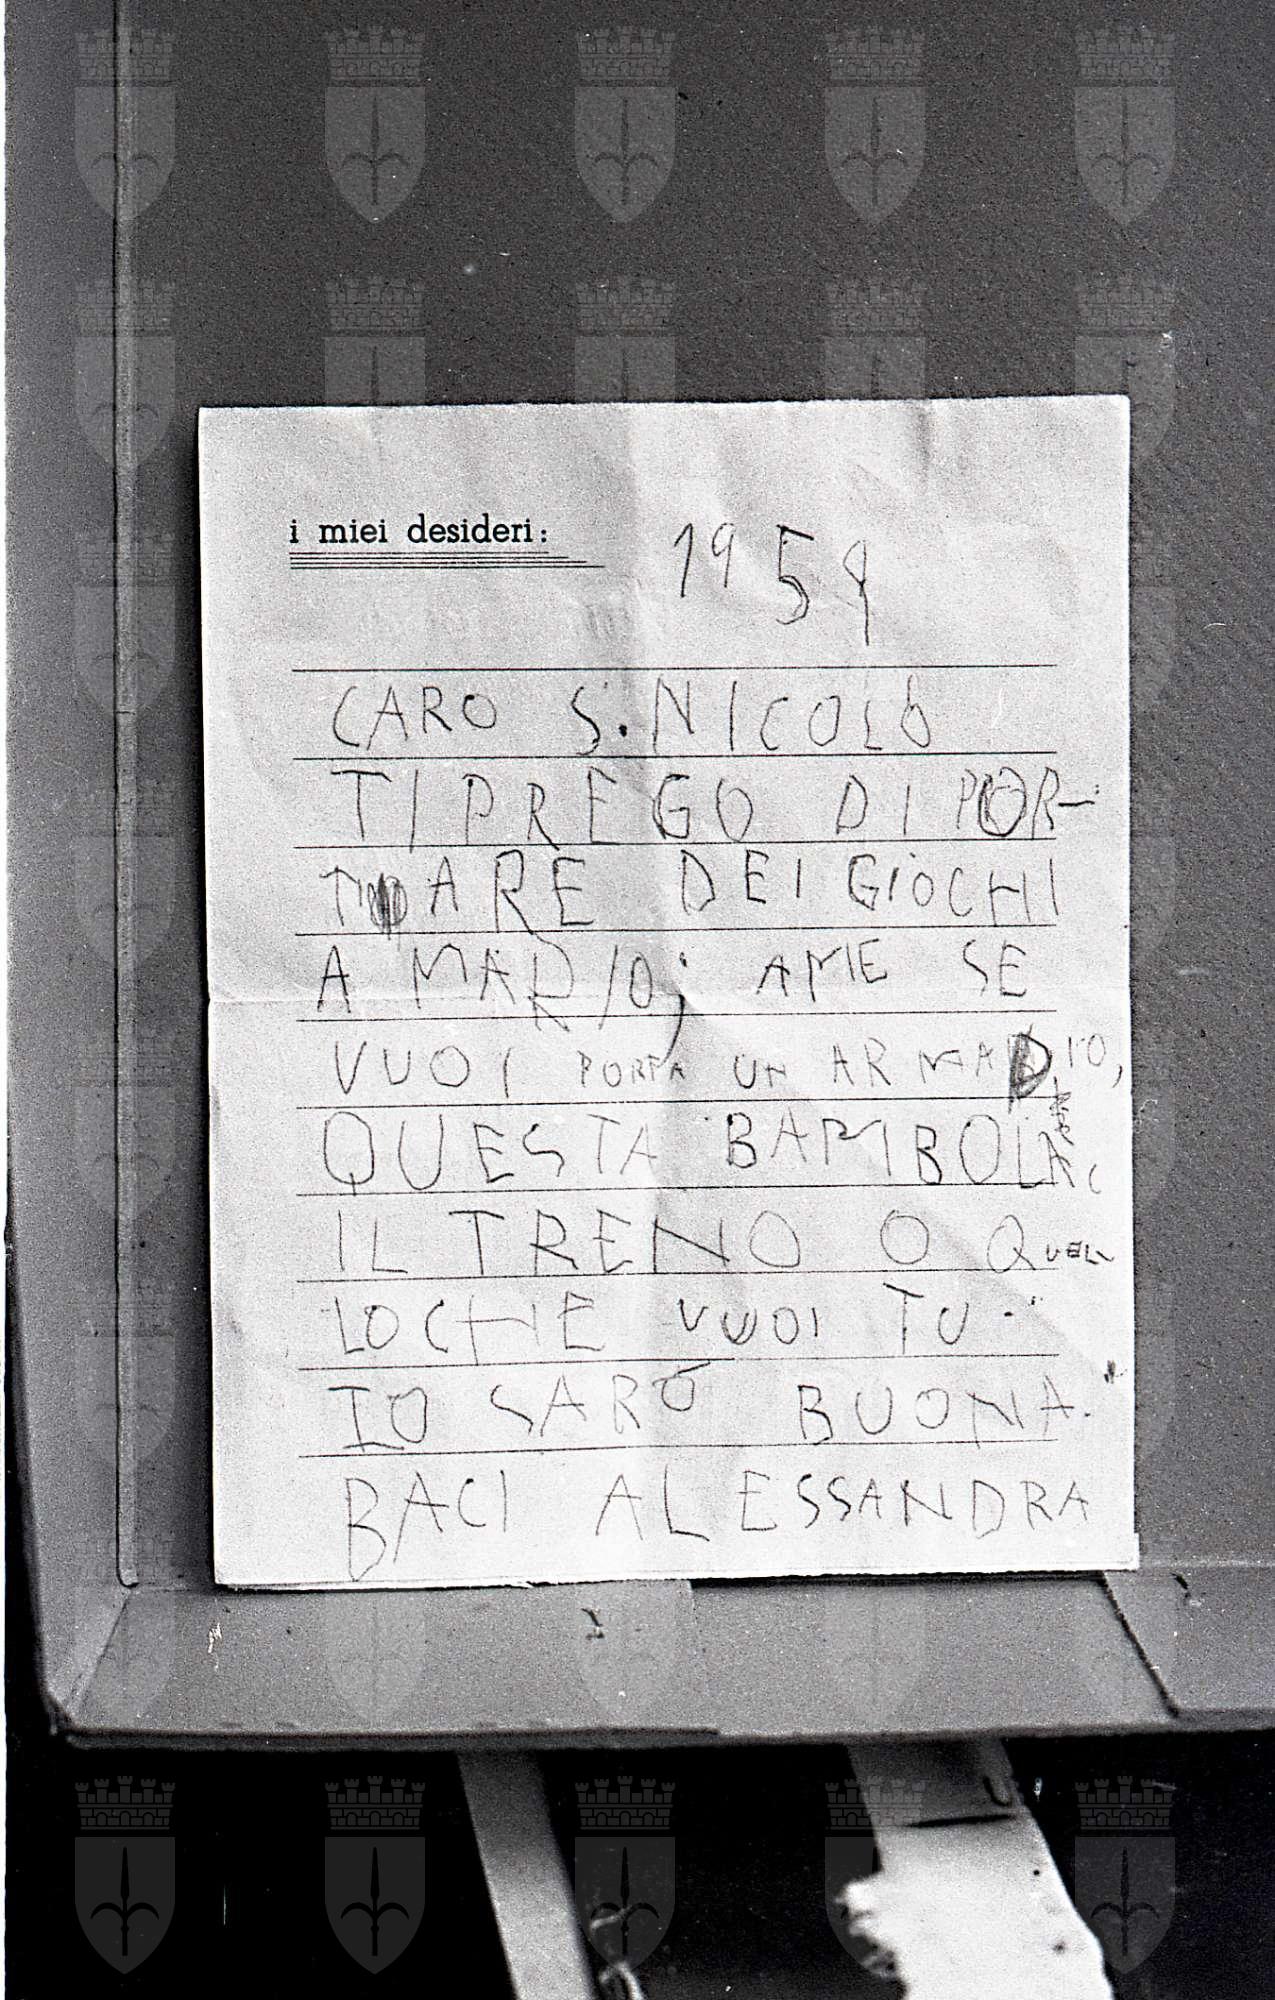 i miei desideri: 1959
CARO S. NICOLÒ
TI PREGO DI POR-
TARE DEI GIOCHI
A MARIO; A ME SE
VUOI PORTA UN ARMADIO,
QUESTA BAMBOLA
IL TRENO O QUEL
LO CHE VUOI TU.
IO SARÓ BUONA.
BACI ALESSANDRA